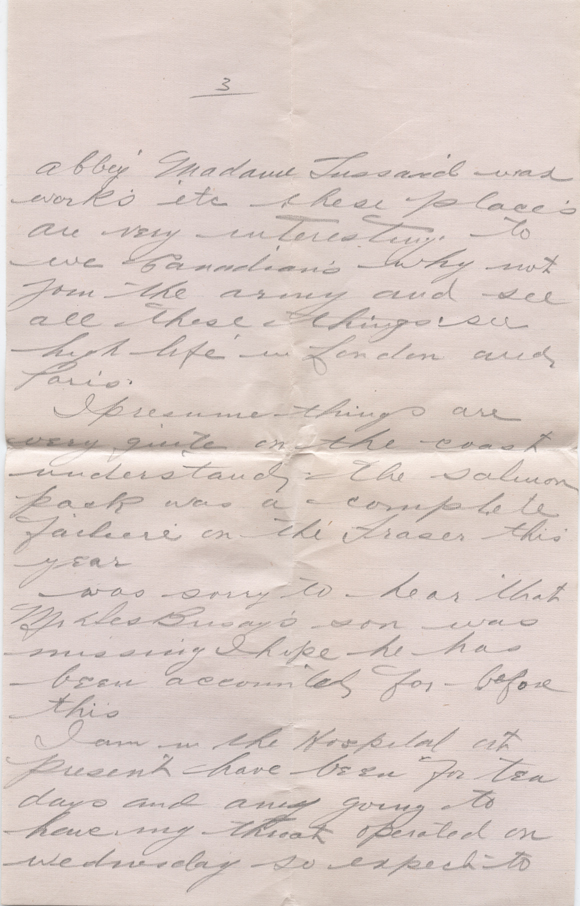 3
abbey Madame Tussaud wax
works etc these places
are very interesting. to
we Canadians why not
join the army and see
all these things see
high life in London and
Paris.
I presume things are
very quite on the coast
understand the salmon
pack was a complete
failure on the Fraser this
year
was sorry to hear that
son was
missing I hope he has
been accounted for before
this
I am in the Hospital at
present have been for ten
days and am going to
have my throat operated on
wednesday so expect to